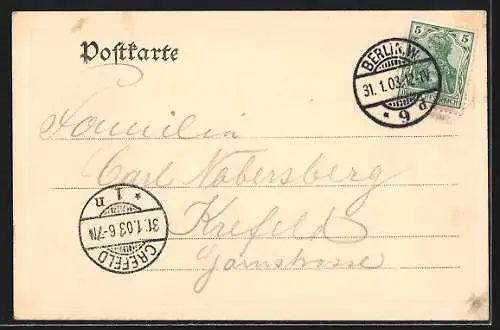 Postkarte
BERLIN.W.
31.1.03.12-1V.
* P 6 *
5 5
Familie
Carl Nabersberg
Krefeld
Garnstrasse
CREFELD
31.1.03.6-7N
* 1 n